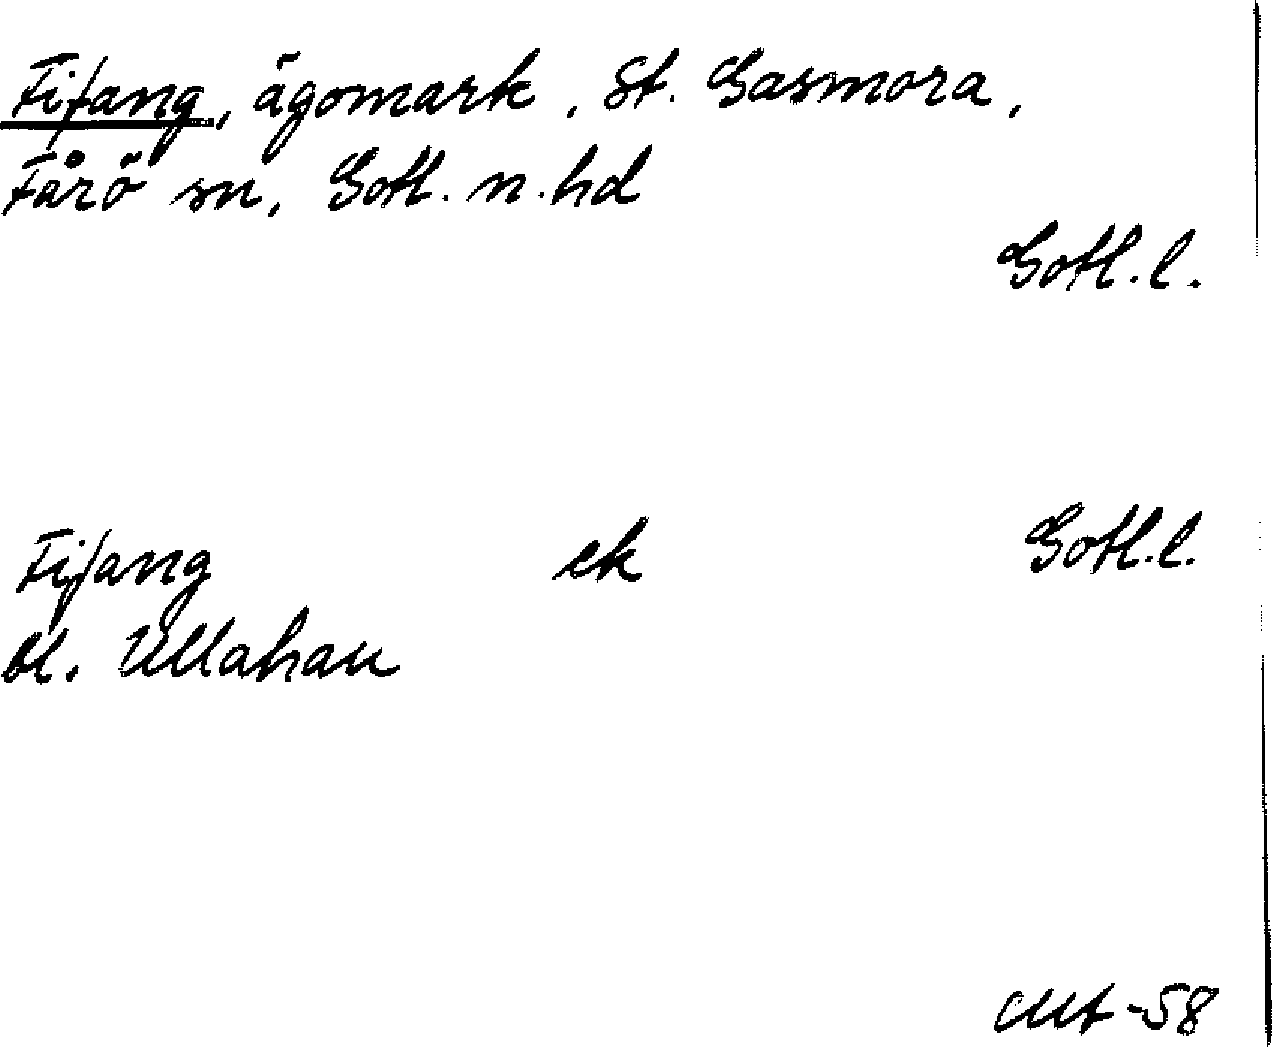 Fifang, ägomark, St. Gasmora,
Fårö sn, Gotl. n. hd
Gotl. l.
Fifang ek Gotl. l.
bl. Ullahau
-58